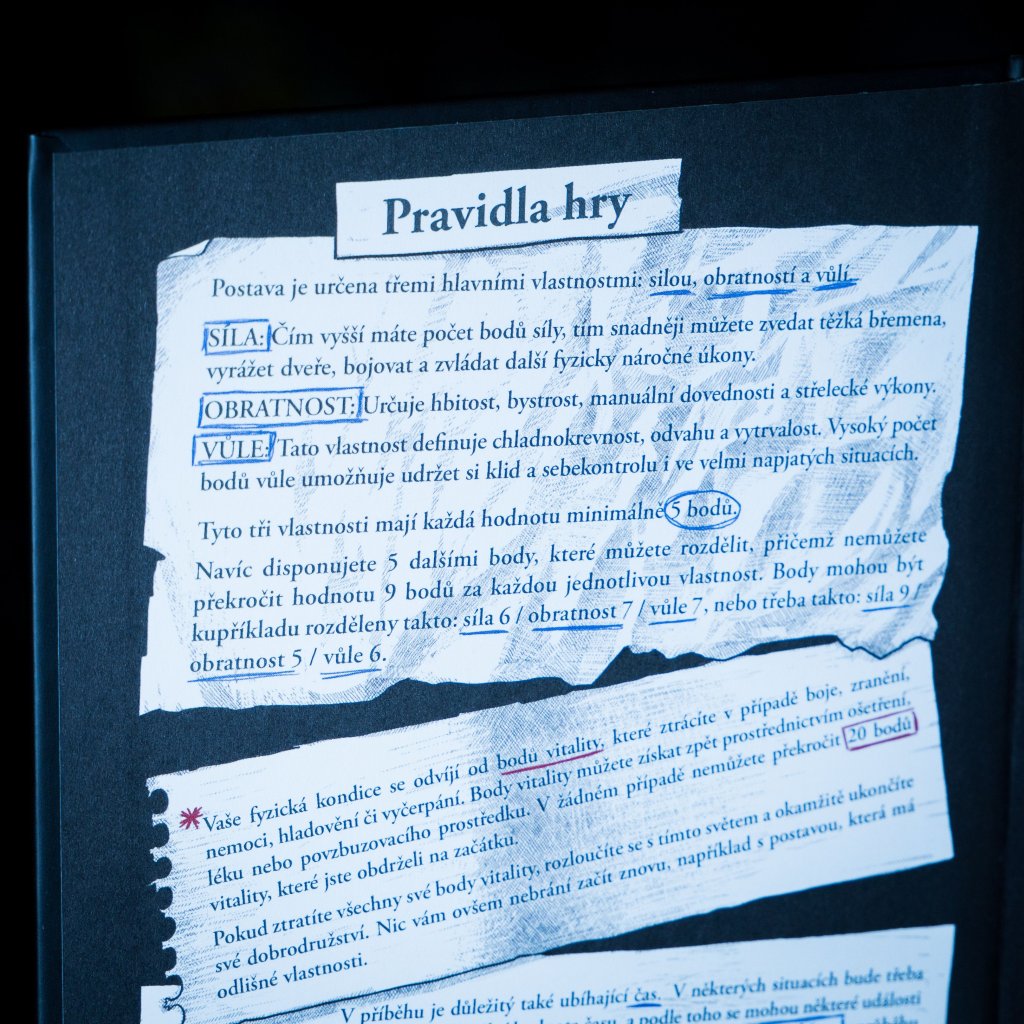 Pravidla hry
Postava je určena třemi hlavními vlastnostmi: silou, obratností a vůlí.
SÍLA: Čím vyšší máte počet bodů síly, tím snadněji můžete zvedat těžká břemena,
vyrážet dveře, bojovat a zvládat další fyzicky náročné úkony.
OBRATNOST: Určuje hbitost, bystrost, manuální dovednosti a střelecké výkony.
VŮLE: Tato vlastnost definuje chladnokrevnost, odvahu a vytrvalost. Vysoký počet
bodů vůle umožňuje udržet si klid a sebekontrolu i ve velmi napjatých situacích.
Tyto tři vlastnosti mají každá hodnotu minimálně 5 bodů.
Navíc disponujete 5 dalšími body, které můžete rozdělit, přičemž nemůžete
překročit hodnotu 9 bodů za každou jednotlivou vlastnost. Body mohou být
kupříkladu rozděleny takto: síla 6 / obratnost 7 / vůle 7, nebo třeba takto: síla 9 /
obratnost 5 / vůle 6.
*Vaše fyzická kondice se odvíjí od bodů vitality, které ztrácíte v případě boje, zranění,
nemoci, hladovění či vyčerpání. Body vitality můžete získat zpět prostřednictvím ošetření,
léku nebo povzbuzovacího prostředku. V žádném případě nemůžete překročit 20 bodů
vitality, které jste obdrželi na začátku.
Pokud ztratíte všechny své body vitality, rozloučíte se s tímto světem a okamžitě ukončíte
své dobrodružství. Nic vám ovšem nebrání začít znovu, například s postavou, která má
odlišné vlastnosti.
V příběhu je důležitý také ubíhající čas. V některých situacích bude třeba
času, a podle toho se mohou některé události